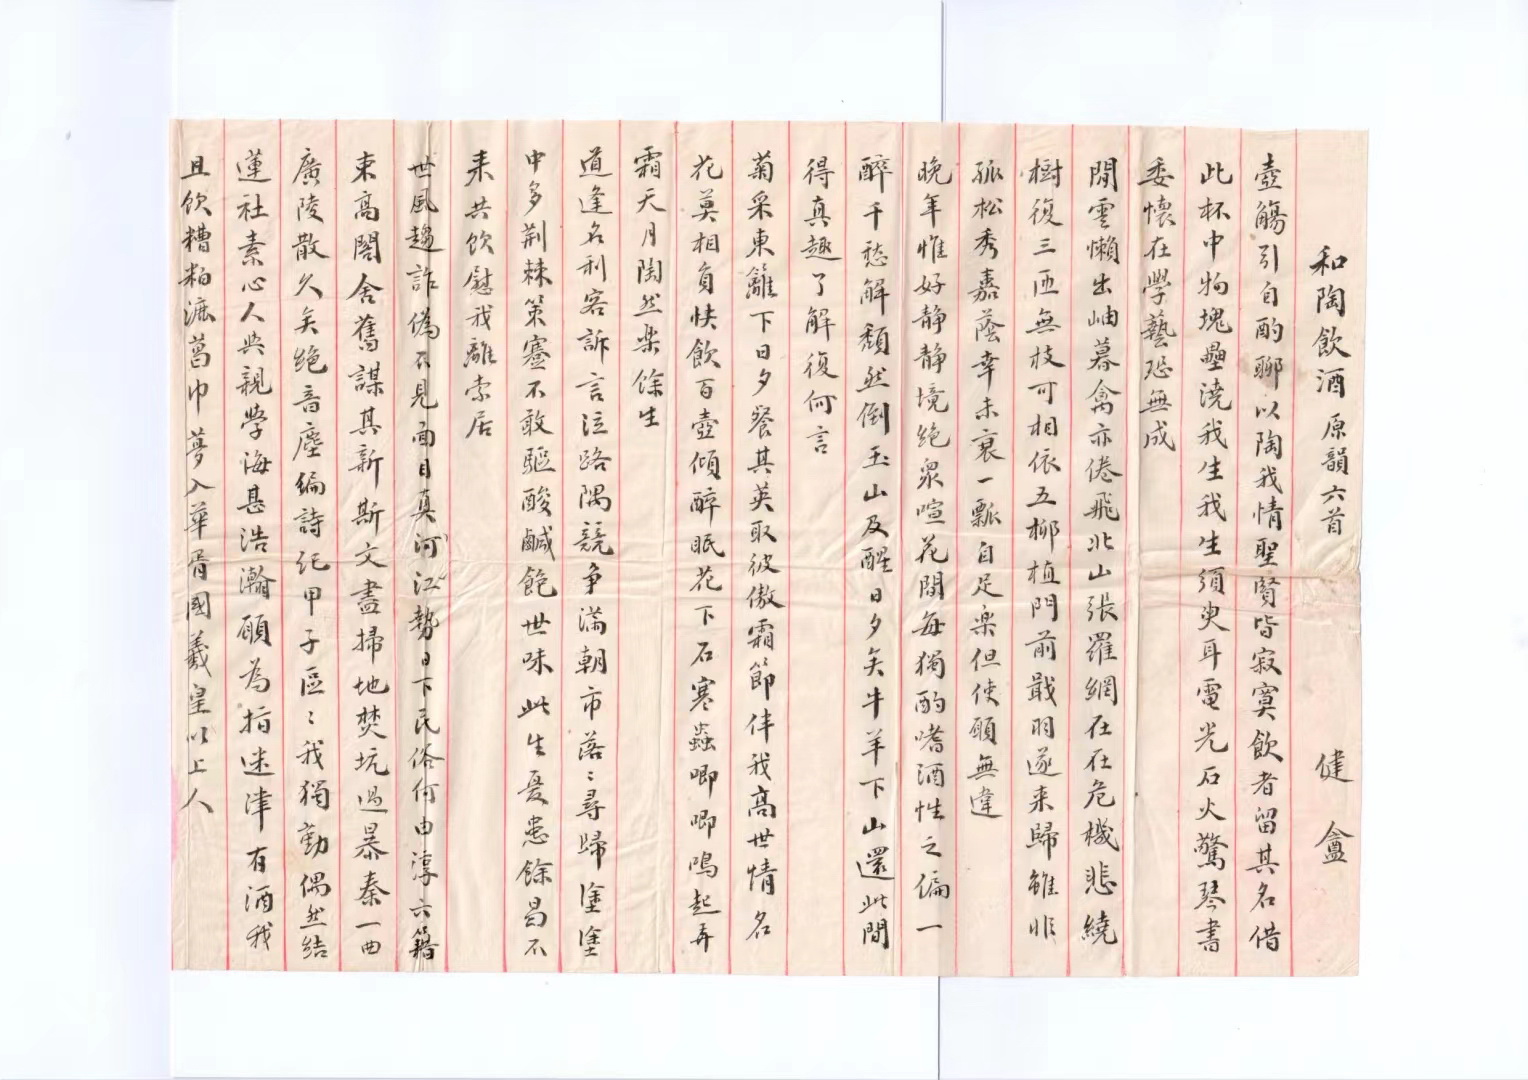 和陶飲酒原韻六首 健盦
壺觴引自酌聊以陶我情聖賢皆寂寞飲者留其名借
此杯中物塊壘澆我生我生須臾耳電光石火驚琴書
委懷在學藝恐無成
閒雲懶出岫暮禽亦倦飛北山張羅網在在危機悲繞
樹復三匝無枝可相依五柳植門前戢羽遂来歸雖非
孤松秀嘉蔭幸未衰一瓢自足樂但使願無違
晚年惟好静静境絶衆喧花間每獨酌嗜酒性之偏一
醉千愁解頹然倒玉山及醒日夕矣牛羊下山還此間
得真趣了解復何言
菊采東籬下日夕餐其英取彼傲霜節伴我高世情名
花莫相負快飲百壺傾醉眠花下石寒蟲唧唧鳴起弄
霜天月陶然樂餘生
道逢名利客訴言泣路隅競爭滿朝市落〻尋歸塗塗
中多荆棘策蹇不敢驅酸鹹飽世味此生憂患餘曷不
来共飲慰我離索居
世風趨詐偽不見面目真河江勢日下民俗何由淳六籍
束高閣舍舊謀其新斯文盡掃地焚坑過暴秦一曲
廣陵散久矣絶音塵編詩紀甲子區〻我獨勤偶然結
蓮社素心人與親學海甚浩瀚願為指迷津有酒我
且飲糟粕漉葛巾夢入華胥國羲皇以上人